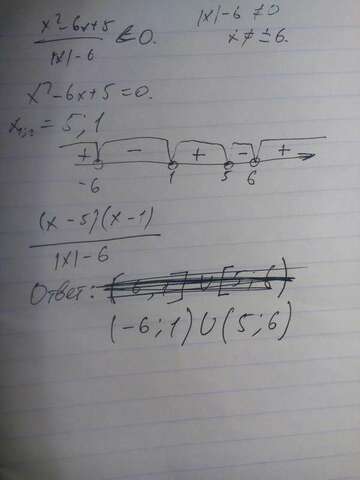 x²-6x+5 / |x|-6 < 0.
|x|-6 ≠ 0
x ≠ ±6.
x²-6x+5=0.
x₁,₂ = 5; 1
+ - + - +
-6 1 5 6
(x-5)(x-1) / |x|-6
Ответ: [-6; 1] ∪ [5; 6)
(-6; 1) ∪ (5; 6)